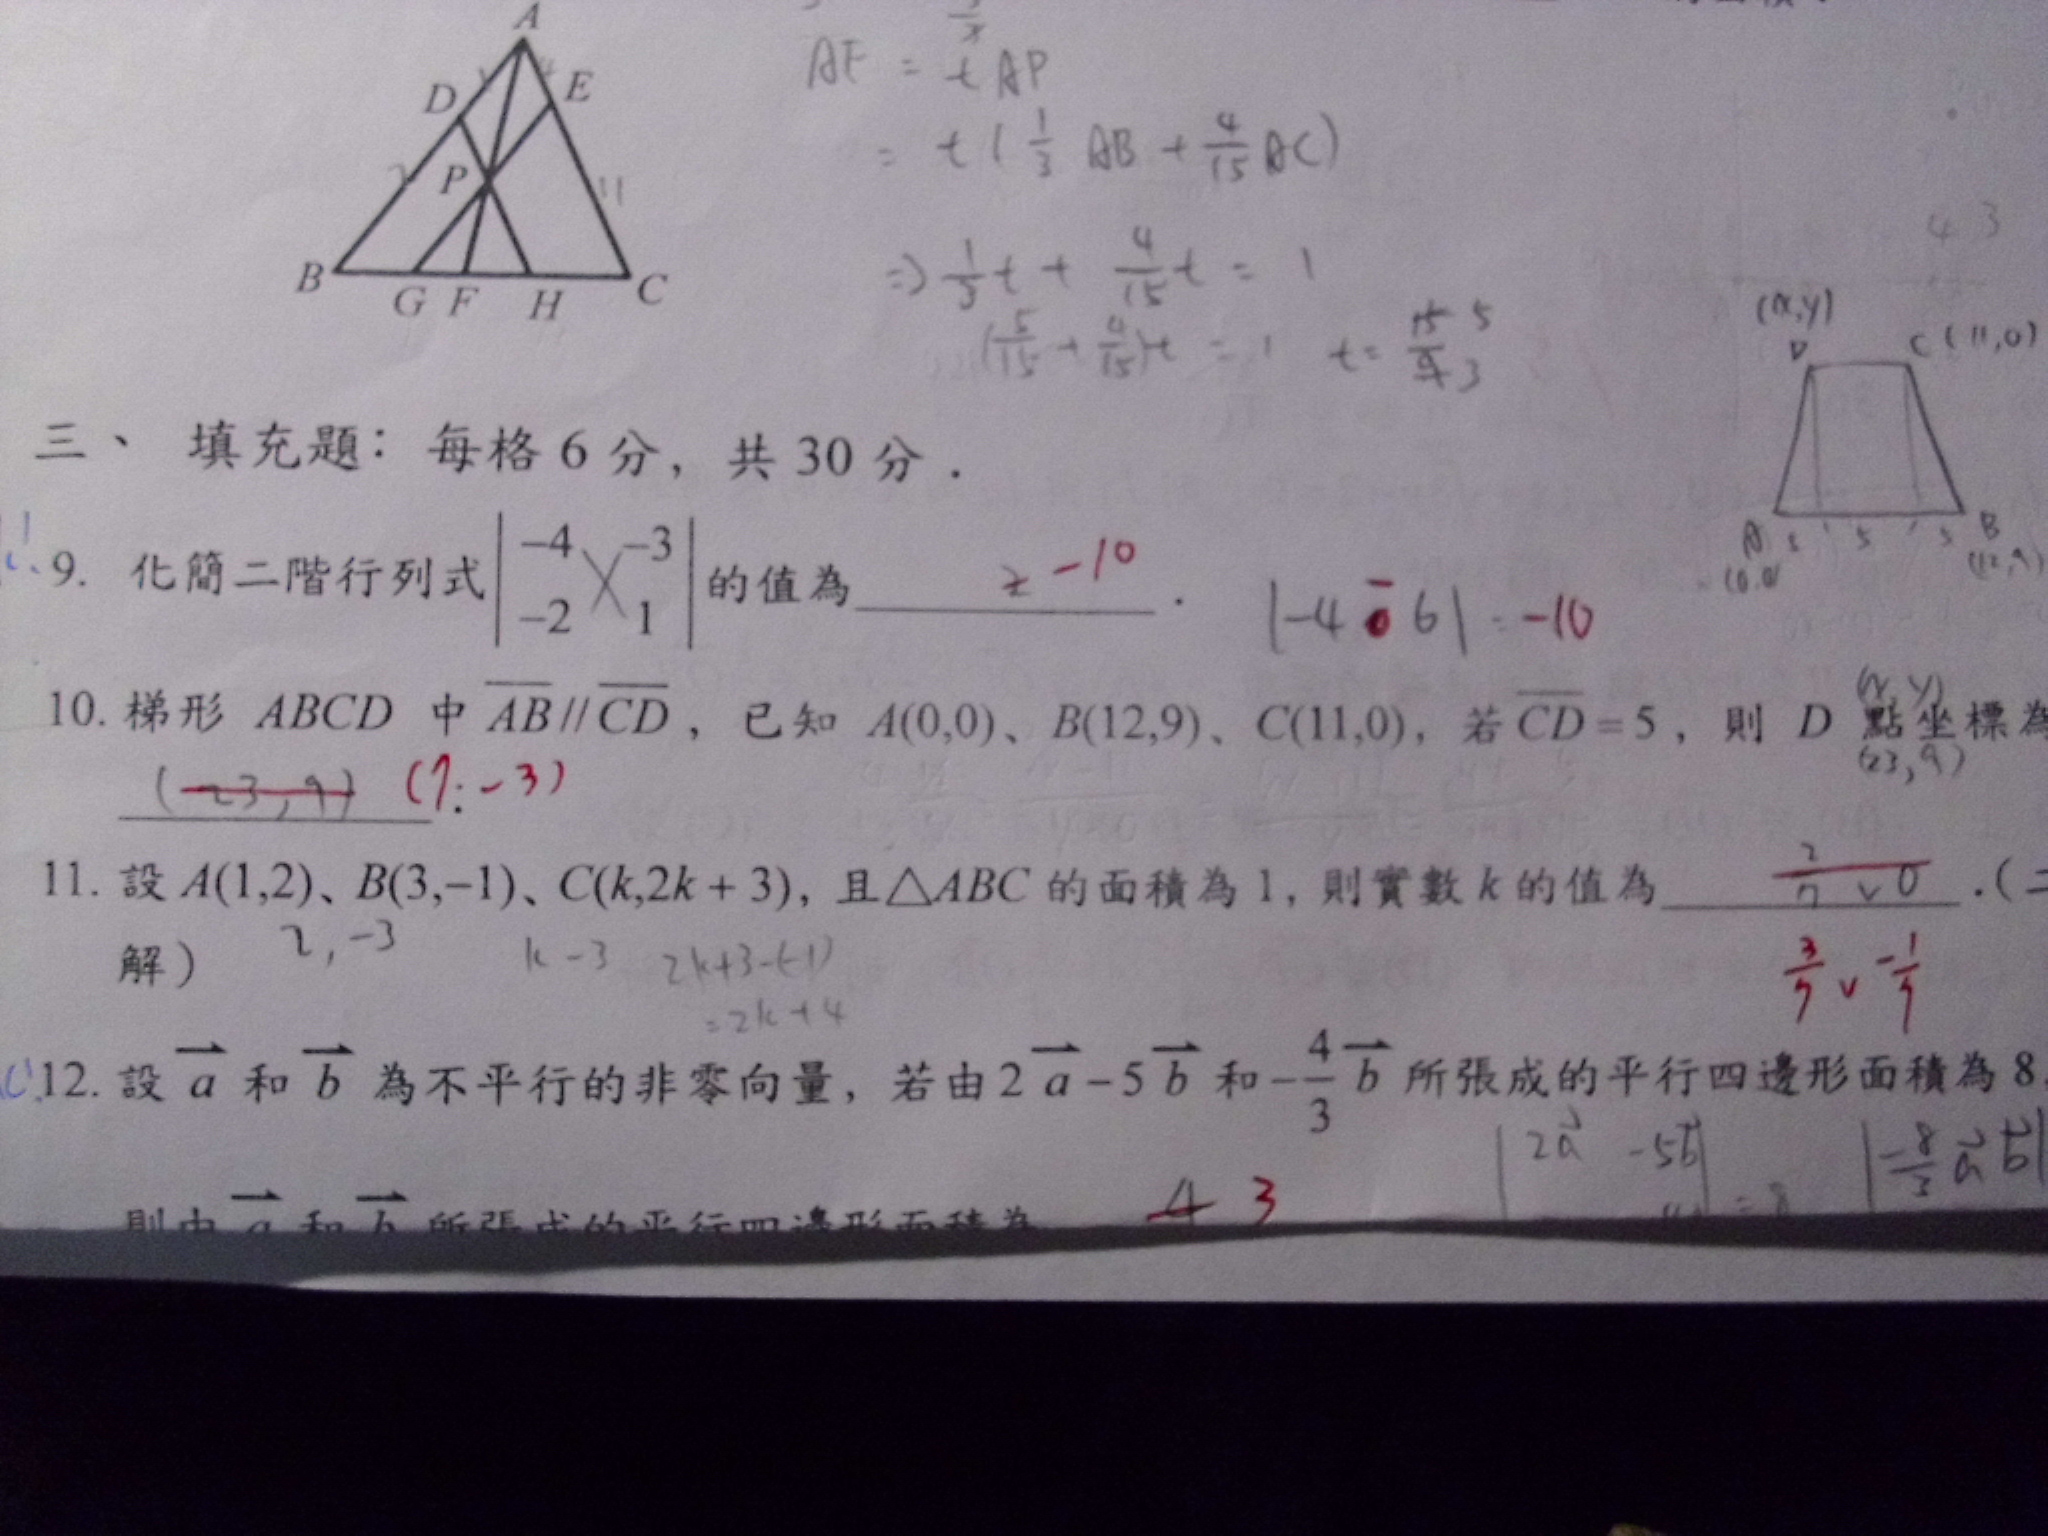 A
D
E
P
B
G F H C
AF = tAP
= t ( 1/3 AB + 4/15 AC)
⇒ 1/3 t + 4/15 t = 1
(5/15 + 4/15)t = 1 t =
5
3
4 3
(x,y)
D C (11,0)
A 5 5 B
(0,0) (12,9)
三、 填充題：每格 6 分，共 30 分．
9. 化簡二階行列式 | -4 -3 | 的值為 2 -10 ．
| -2 1 |
|-4 - 6| = -10
(x, y)
10. 梯形 ABCD 中 AB // CD ，已知 A(0,0)、B(12,9)、C(11,0)，若 CD = 5 ，則 D 點坐標為
(23, 9)
(-23, 9) (7, -3) ．
11. 設 A(1,2)、B(3,−1)、C(k,2k + 3)，且△ABC 的面積為 1，則實數 k 的值為 ∨ 0 ．(二
解）
2, -3 k-3 2k+3-(-1)
= 2k+4
3/7 ∨ -1/7
12. 設 a 和 b 為不平行的非零向量，若由 2 a − 5 b 和 − 4/3 b 所張成的平行四邊形面積為 8，
2a -5b
= 8
-8/3 a b
則由 a 和 b 所張成的平行四邊形面積為 4 3